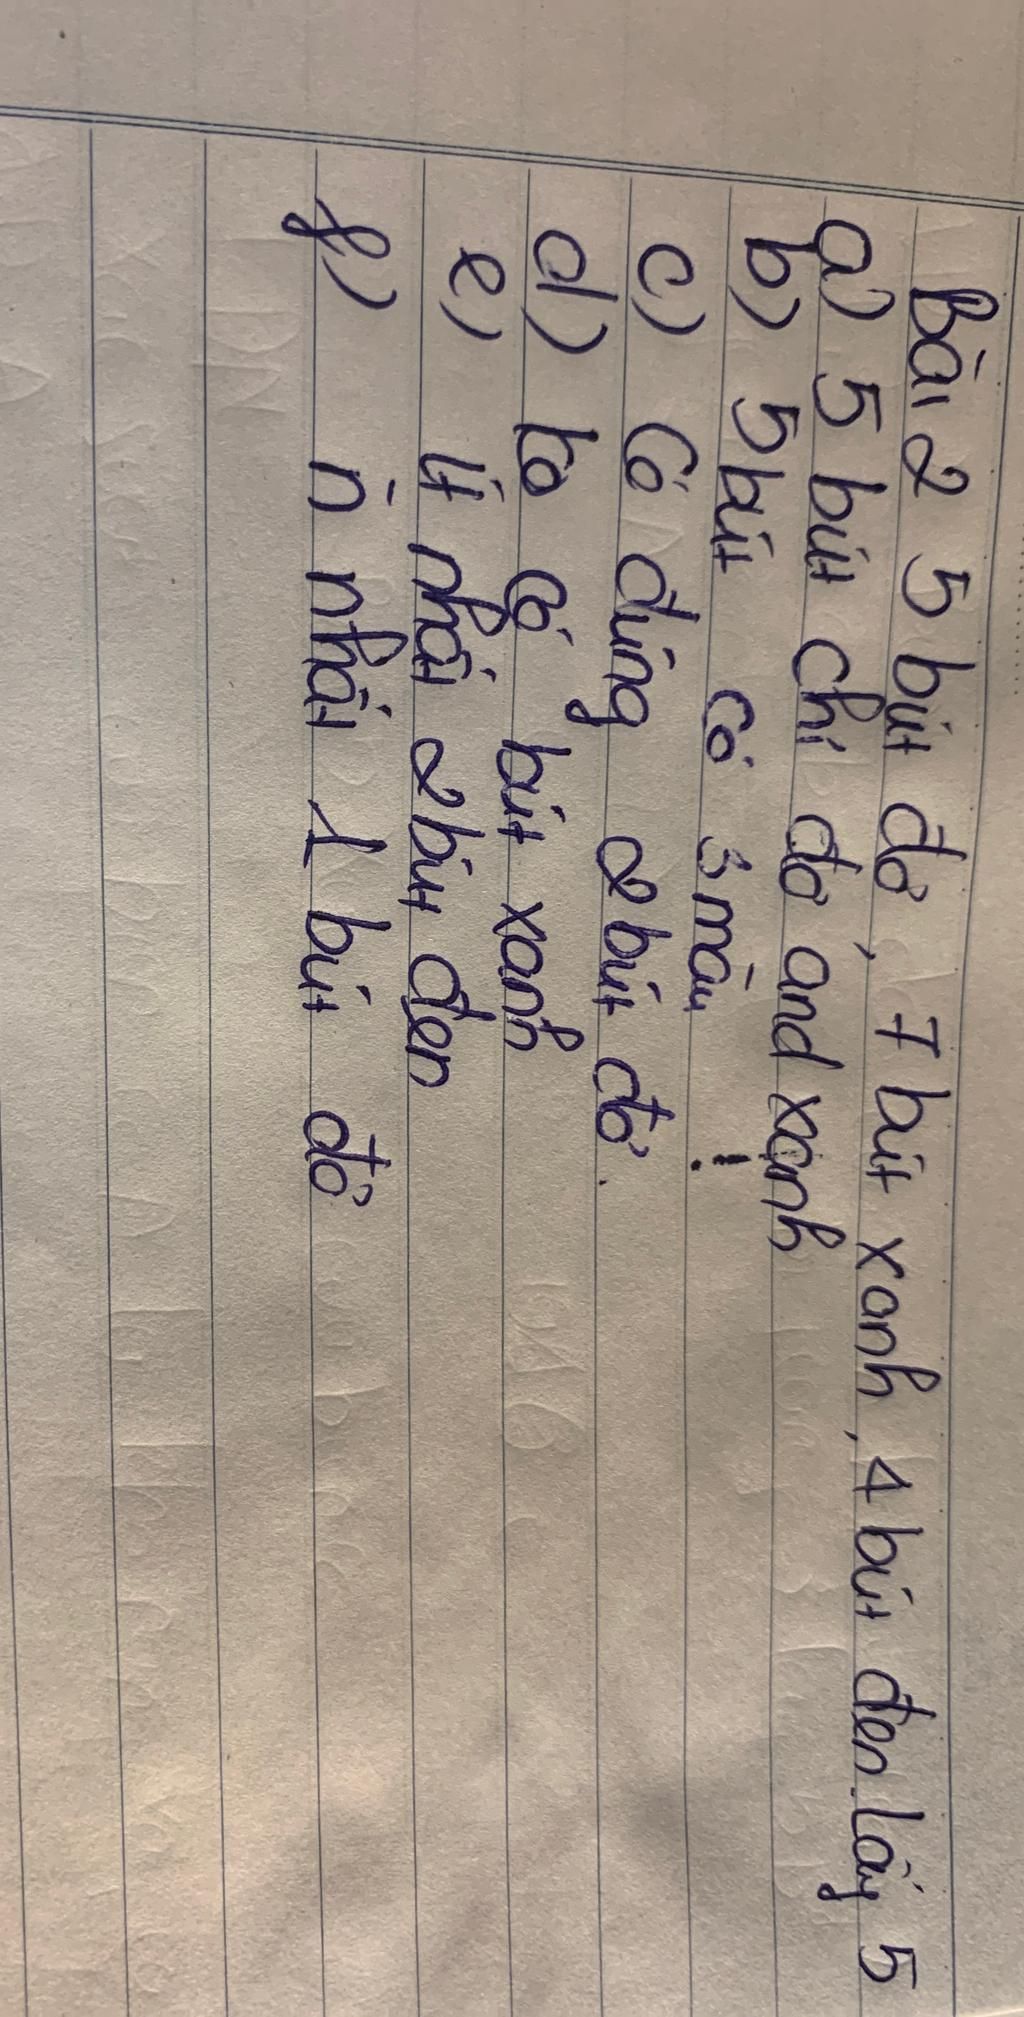 Bài 2 5 bút đỏ, 7 bút xanh, 4 bút đen lấy 5
a) 5 bút chỉ đỏ and xanh
b) 5 bút có 3 màu
c) Có đúng 2 bút đỏ.
d) ko có bút xanh
e) ít nhất 2 bút đen
f) ít nhất 1 bút đỏ